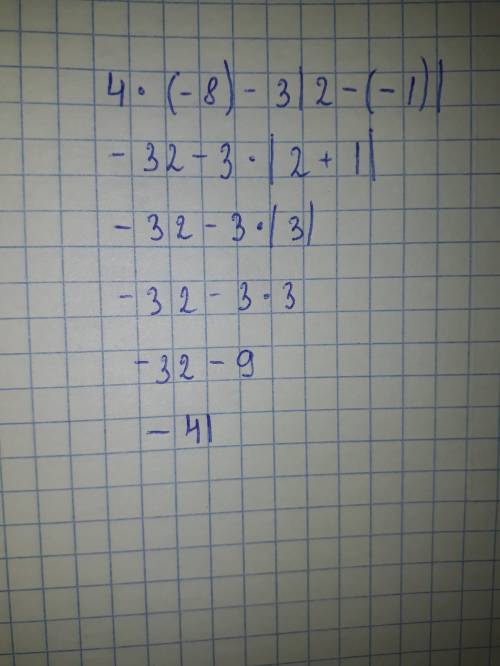 4 · (-8) - 3|2 - (-1)|
-32 - 3 · |2 + 1|
-32 - 3 · |3|
-32 - 3 · 3
-32 - 9
-41